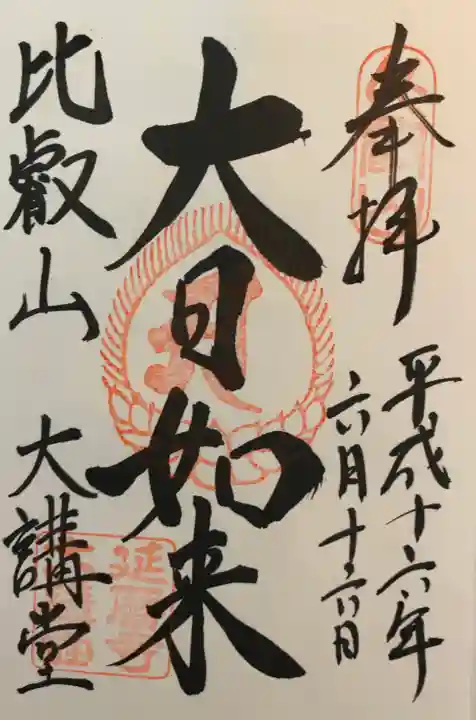 奉拝
平成十六年
六月十六日
大日如来
比叡山 大講堂
延暦寺